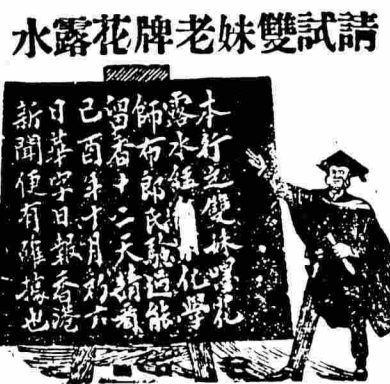 請試雙妹老牌花露水
本行之雙妹嘜花
露水經化學
師布郎氏驗過能
留香十二天請看
己酉年十月初六
日華字日報香港
新聞便有確據也